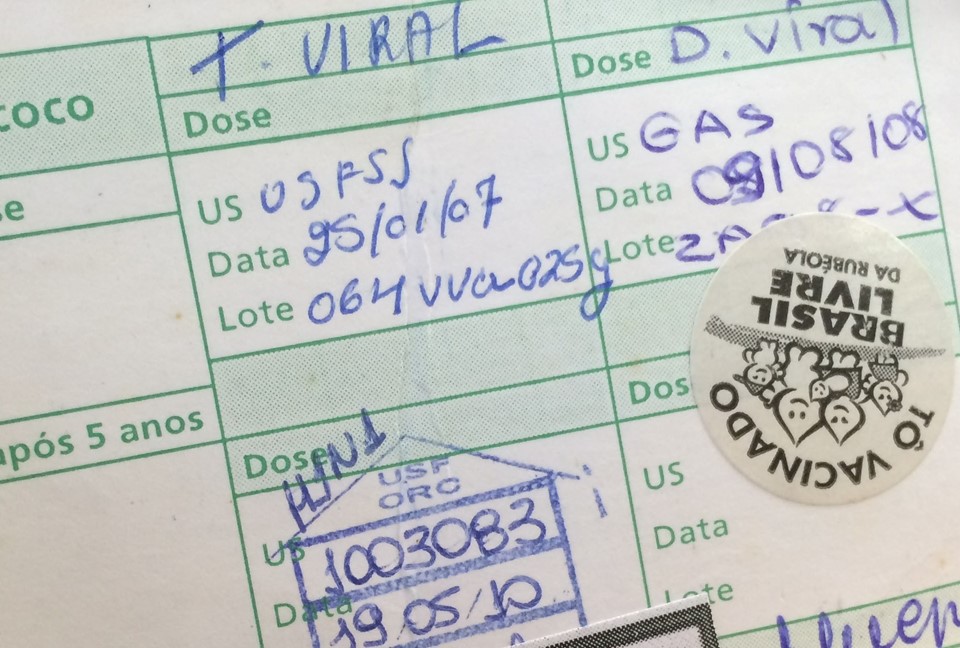 T. VIRAL
Dose
US USFSS
Data 25/01/07
Lote 064VVa025g
Dose D. Viral
US GAS
Data 09/08/08
Lote
coco
após 5 anos
Dose H1N1
USF
ORO
US 1003083
Data 19 05/10
Dos
US
Data
Lote
TÔ VACINADO
BRASIL
LIVRE
DA RUBÉOLA